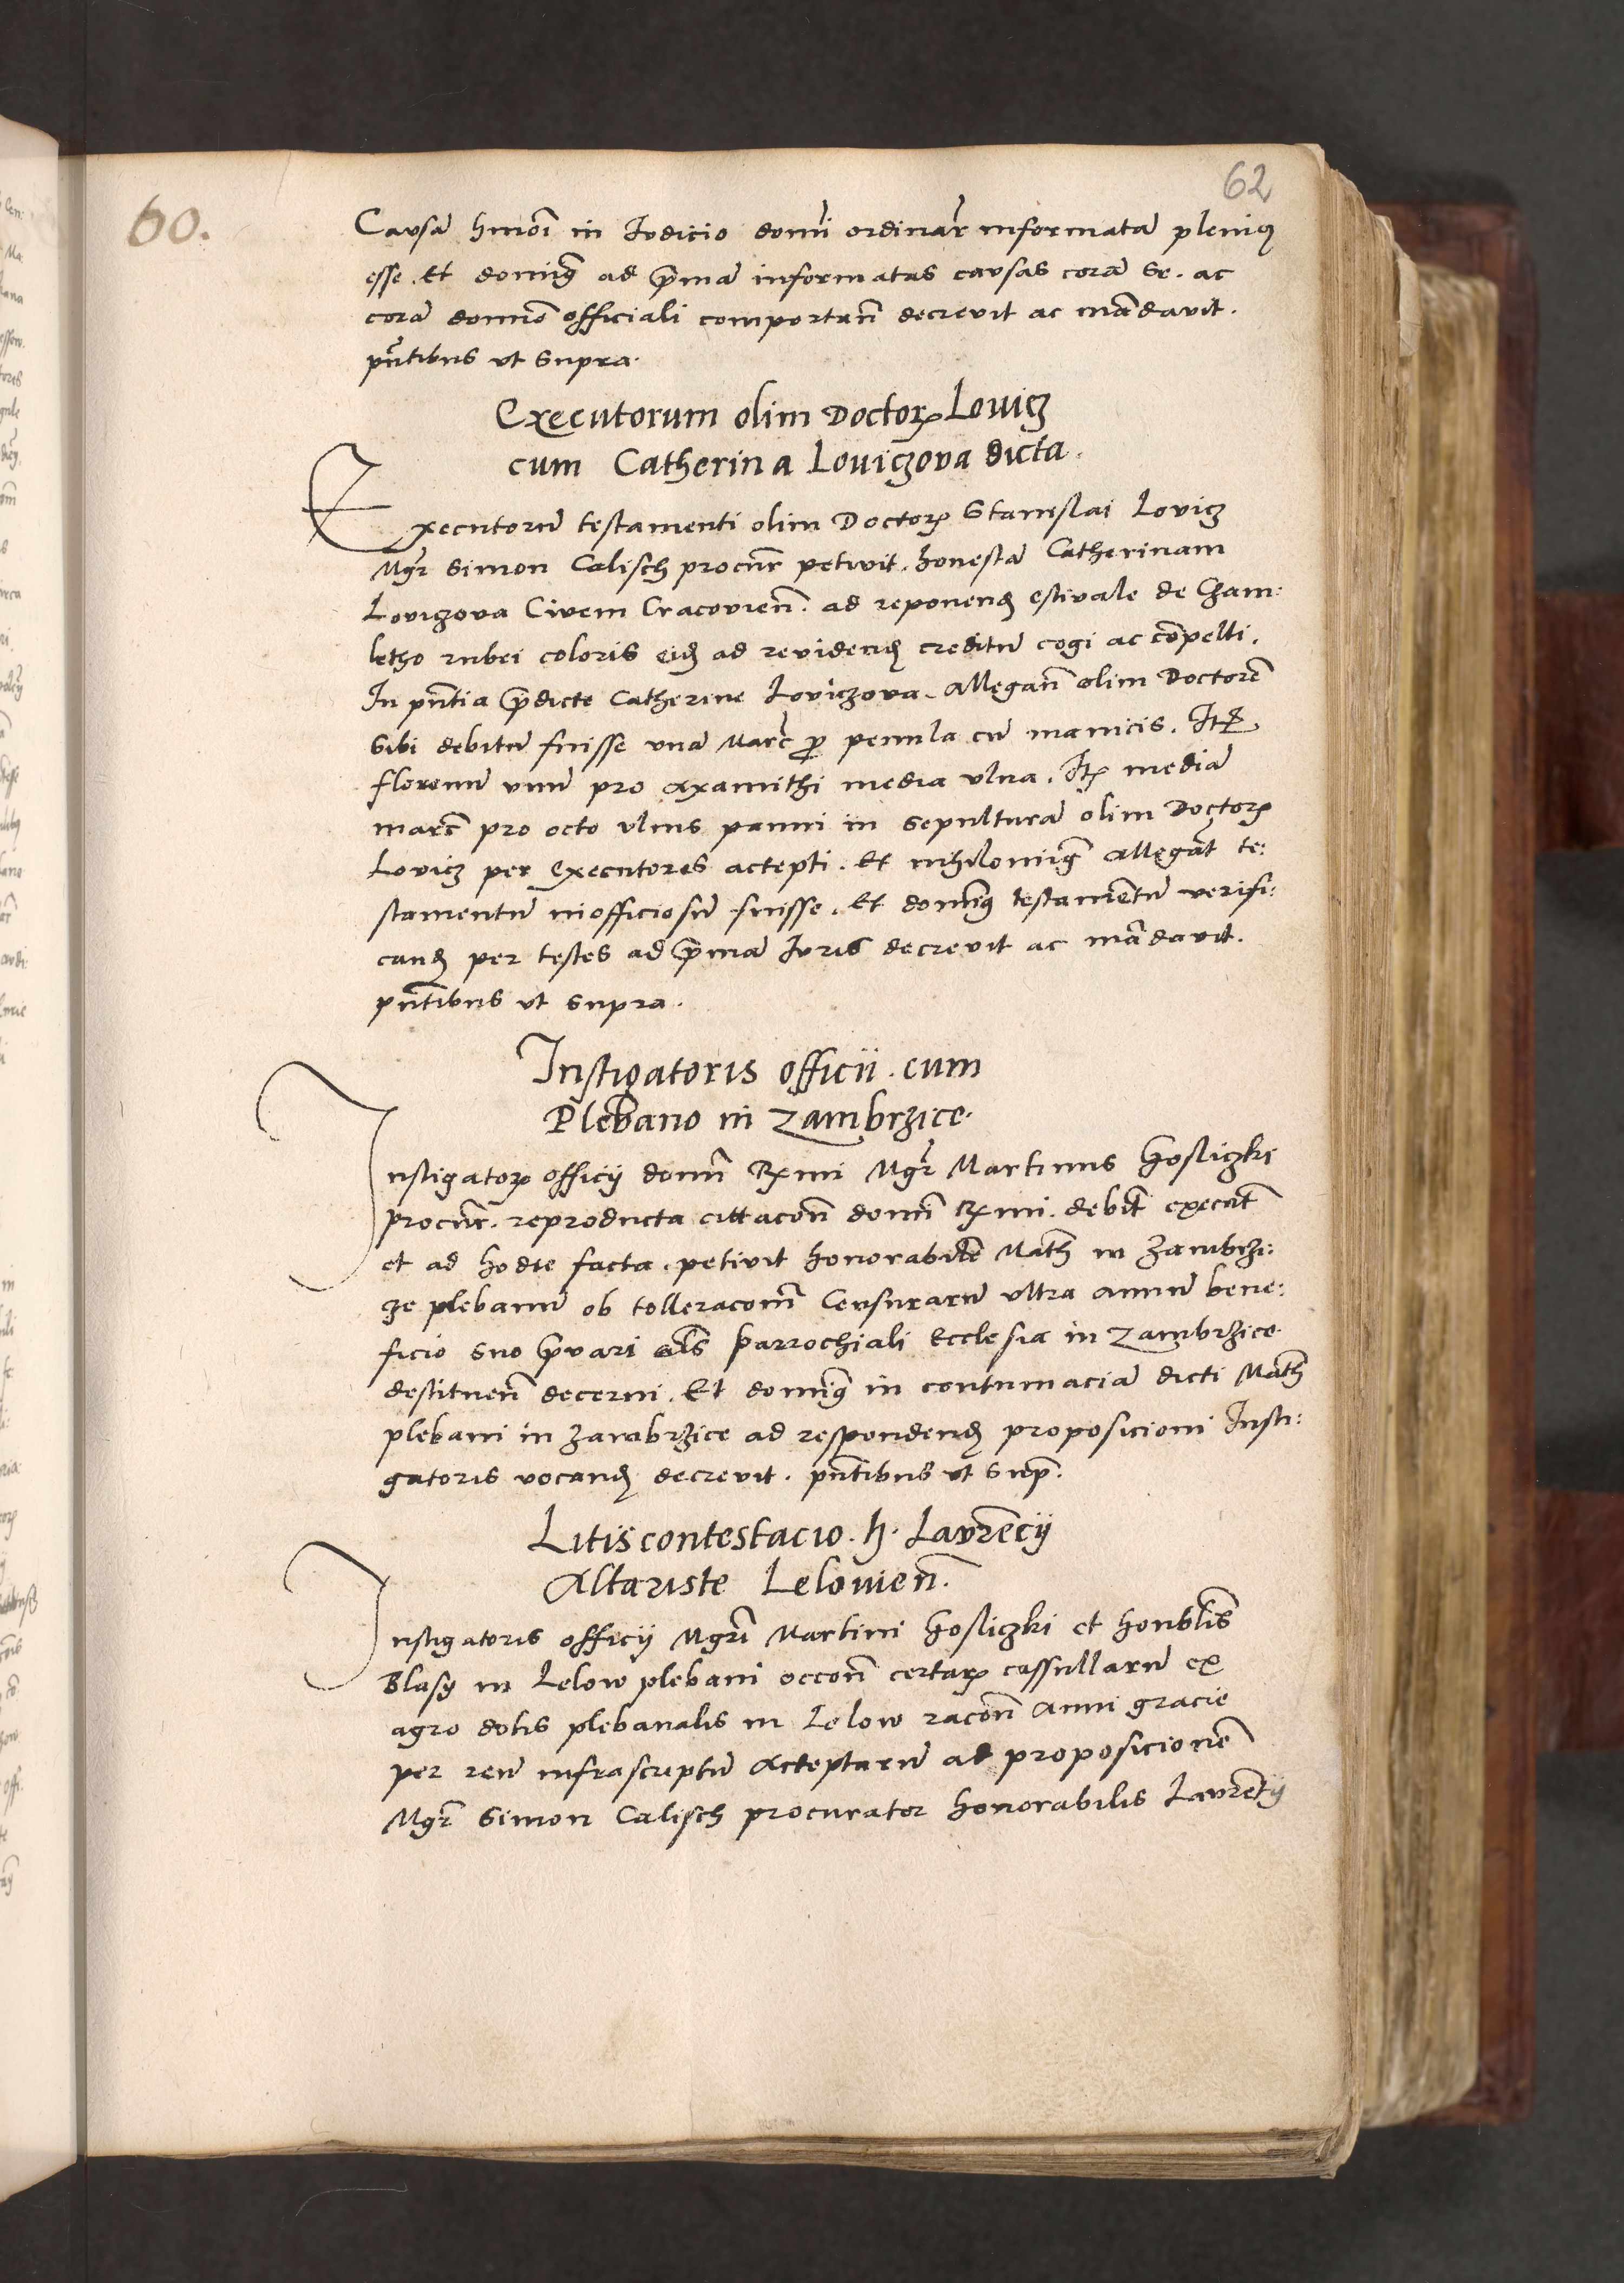 62
60.
Causã hmõi in Iudicio domĩ ordinar̃ informatã pleniꝰ
esse. Et dominꝰ ad p̃mã informatas causas corã se. ac
corã domino officiali comportañ decrevit ac mãdavit.
pñtibus ut supra.
Executorum olim Doctorꝭ Lovicz
cum Catherina Loviczova dicta.
Executorũ testamenti olim Doctorꝭ Stanislai Lovicz
Mgr̃ Simon Calisch procur̃ petivit. honestã Catherinam
Loviczova Civem Cracovieñ. ad reponendꝭ estivale de Czam:
letho rubei coloris eidꝭ ad revidendꝭ creditũ cogi ac cõpelli.
In pñtia p̃dicte Catherine Loviczova. Allegañ olim Doctorẽ
Sibi debitũ fuisse unã Marc̃ ꝓ penula cũ manicis. Itꝭ
florenũ unũ pro axamithi media ulna. Itꝭ mediã
marc̃ pro octo ulnis panni in sepulturã olim Doctorꝭ
Lovicz per executores accepti. Et nihilominꝰ allegat̃ te:
stamentũ inofficiosũ fuisse. Et dominꝰ testamẽtũ verifi:
candꝭ per testes ad p̃mã Iuris decrevit ac mãdavit.
pñtibus ut supra.
Instigatoris officii. cum
Plebano in Zambrzice.
Instigatorꝭ officij domĩ Rꝭmi Mgr̃ Martinus Gosliczki
procur̃. reproducta cittacoñ domĩ Rꝭmi. debit̃ execut̃
et ad hodie facta. petivit honorabilẽ Math̃ in Zambrzi:
ze plebanũ ob tolleracoñ Censurarũ ultra annũ bene:
ficio suo p̃vari als̃ parrochiali Ecclesia in Zambrzice
destituen̄ decerni. Et dominꝰ in contumaciã dicti Math̃
plebani in Zambrzice ad respondendꝭ proposicioni Insti:
gatoris vocandꝭ decrevit. pñtibus ut sup̃.
Litiscontestacio. h. Laurẽcij
Altariste Lelovieñ.
Instigatoris officij Mgrĩ Martini Gosliczki et honblis̃
Blasij in Lelow plebani occoñ certarꝭ cassullarũ ex
agro dotis plebanalis in Lelow racoñ anni gracie
per reũ infrascriptũ acceptarũ ad proposicionẽ
Mgr̃ Simon Calisch procurator honorabilis Laurẽtij